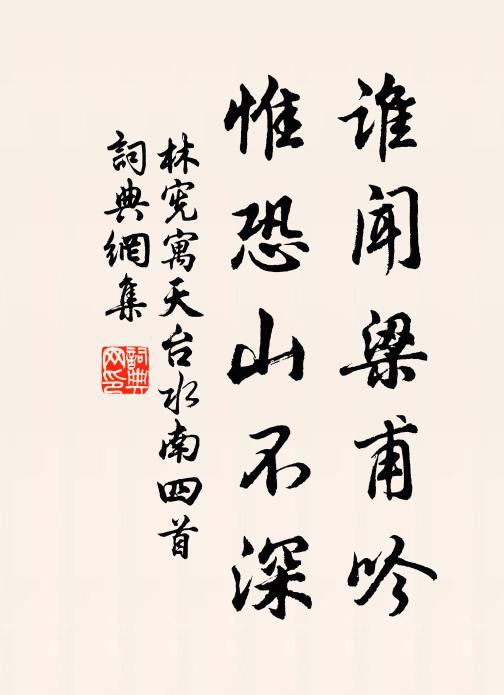 谁闻梁甫吟
惟恐山不深
林宪寓天台水南四首
詞典網集
詞典网印